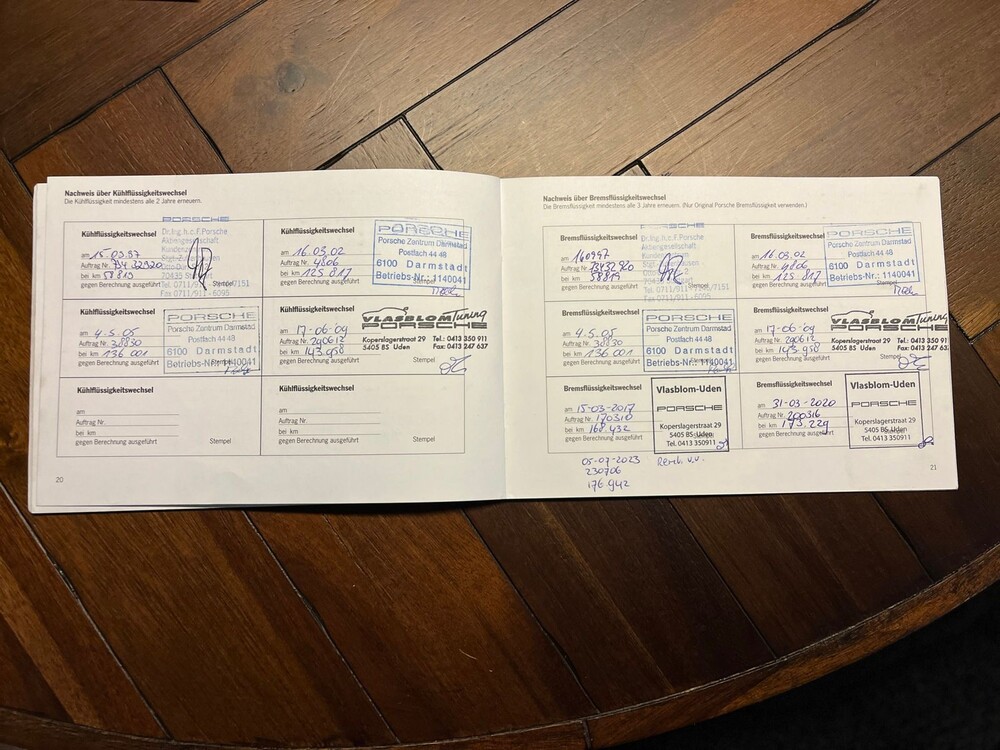 Nachweis über Kühlflüssigkeitswechsel
Die Kühlflüssigkeit mindestens alle 2 Jahre erneuern.
Kühlflüssigkeitswechsel
am
Auftrag Nr.
bei km 58810
gegen Berechnung ausgeführt
Stempel
PORSCHE
Dr.Ing.h.c.F.Porsche
Aktiengesellschaft
Tel. 0711/911-
Fax 0711/911 - 6095
Kühlflüssigkeitswechsel
am 16.03.02
Auftrag Nr. 4806
bei km 125.817
gegen Berechnung ausgeführt
Stempel
PORSCHE
Porsche Zentrum Darmstadt
Postfach 44 48
6100 Darmstadt
Betriebs-Nr.: 1140041
Kühlflüssigkeitswechsel
am 4.5.05
Auftrag Nr. 38830
bei km 136 001
gegen Berechnung ausgeführt
PORSCHE
Porsche Zentrum Darmstadt
Postfach 44 48
6100 Darmstadt
Betriebs-Nr.: 1140041
Kühlflüssigkeitswechsel
am 17-06-09
Auftrag Nr. 290612
bei km 143.958
gegen Berechnung ausgeführt
Stempel
VLASBLOM Tuning
PORSCHE
Koperslagerstraat 29
5405 BS Uden
Tel.: 0413 350 911
Fax: 0413 247 637
Kühlflüssigkeitswechsel
am
Auftrag Nr.
bei km
gegen Berechnung ausgeführt
Stempel
Kühlflüssigkeitswechsel
am
Auftrag Nr.
bei km
gegen Berechnung ausgeführt
Stempel
20
Nachweis über Bremsflüssigkeitswechsel
Die Bremsflüssigkeit mindestens alle 3 Jahre erneuern. (Nur Original Porsche Bremsflüssigkeit verwenden.)
Bremsflüssigkeitswechsel
am 160997
Auftrag Nr.
bei km
gegen Berechnung ausgeführt
Stempel
PORSCHE
Dr.Ing.h.c.F.Porsche
Aktiengesellschaft
Tel. 0711/911-
Fax 0711/911 - 6095
Bremsflüssigkeitswechsel
am 16.03.02
Auftrag Nr. 4806
bei km 125 817
gegen Berechnung ausgeführt
Stempel
PORSCHE
Porsche Zentrum Darmstadt
Postfach 44 48
6100 Darmstadt
Betriebs-Nr.: 1140041
Bremsflüssigkeitswechsel
am 4.5.05
Auftrag Nr. 38830
bei km 136 001
gegen Berechnung ausgeführt
PORSCHE
Porsche Zentrum Darmstadt
Postfach 44 48
6100 Darmstadt
Betriebs-Nr.: 1140041
Bremsflüssigkeitswechsel
am 17-06-09
Auftrag Nr. 290612
bei km 143.958
gegen Berechnung ausgeführt
Stempel
VLASBLOM Tuning
PORSCHE
Koperslagerstraat 29
5405 BS Uden
Tel.: 0413 350 911
Fax: 0413 247 637
Bremsflüssigkeitswechsel
am 15-03-2017
Auftrag Nr. 170310
bei km 168.432
gegen Berechnung ausgeführt
Stempel
Vlasblom-Uden
PORSCHE
Koperslagerstraat 29
5405 BS Uden
Tel. 0413 350911
Bremsflüssigkeitswechsel
am 31-03-2020
Auftrag Nr. 200316
bei km 173.229
gegen Berechnung ausgeführt
Stempel
Vlasblom-Uden
PORSCHE
Koperslagerstraat 29
5405 BS Uden
Tel. 0413 350911
05-07-2023
230706
176.942
21